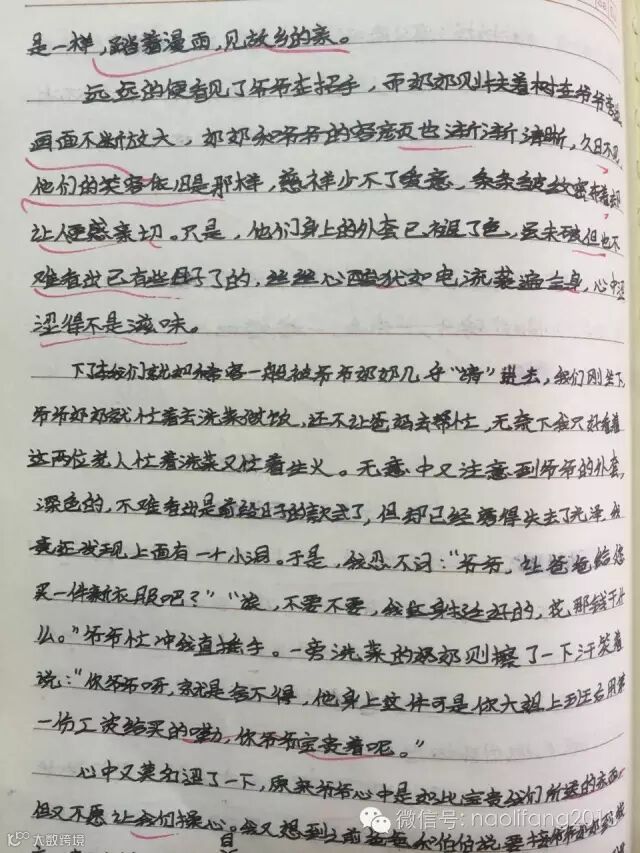 是一样，踏着漫雨，见故乡的亲。
远远的便看见了爷爷在招手，而奶奶则扶着树在爷爷
画面不断放大，奶奶和爷爷的容声也渐渐清晰，久日不见
他们的笑容依旧是那样，慈祥少不了爱意，条条皱纹
让人便感亲切。只是，他们身上的外套已褪了色，虽未破但也不
难看出已有些日子了的，丝丝心酸犹如电流袭遍全身，心中涩
涩得不是滋味。
下了车我们就如稀客一般被爷爷奶奶几乎“请”进去，我们刚坐下
爷爷奶奶就忙着去洗菜做饭，还不让爸妈去帮忙，无奈下我只好看着
这两位老人忙着洗菜又忙着生火。无意中又注意到爷爷的外套，
深色的，不难看出是前段日子的款式了，但却已经磨得失去了光泽，我
竟还发现上面有一个小洞。于是，我忍不住问：“爷爷，让爸爸给您
买一件新衣服吧？”“诶，不要不要，我这身挺好的，花那钱干什
么。”爷爷忙冲我直摇手。一旁洗菜的奶奶则擦了一下汗笑着
说：“你爷爷呀，就是舍不得，他身上这件可是你大姐上班后用第
一份工资给买的嘞，你爷爷宝贵着呢。”
心中又莫名涩了一下，原来爷爷心中是如此宝贵我们所送的东西，
但又不愿让我们操心。我又想到之前爸爸和伯伯说要接爷爷奶奶到
微信号: naolifang201
大数跨境